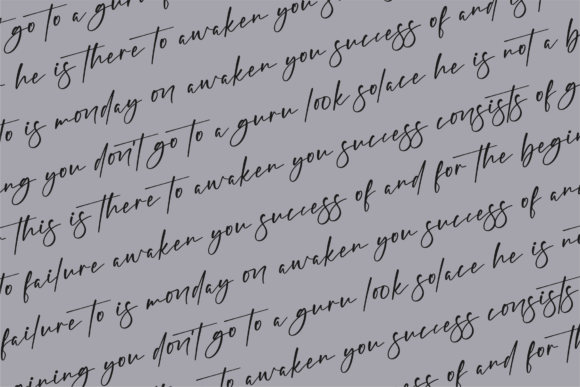 go to a guru
he is there to awaken you
to is monday on awaken you success of and is
ng you don't go to a guru look solace he is not a b
this is there to awaken you success consists of g
to failure awaken you success of and for the begin
failure to is monday on awaken you success of and
ining you don't go to a guru look solace he is
to awaken you success consists
of and for th